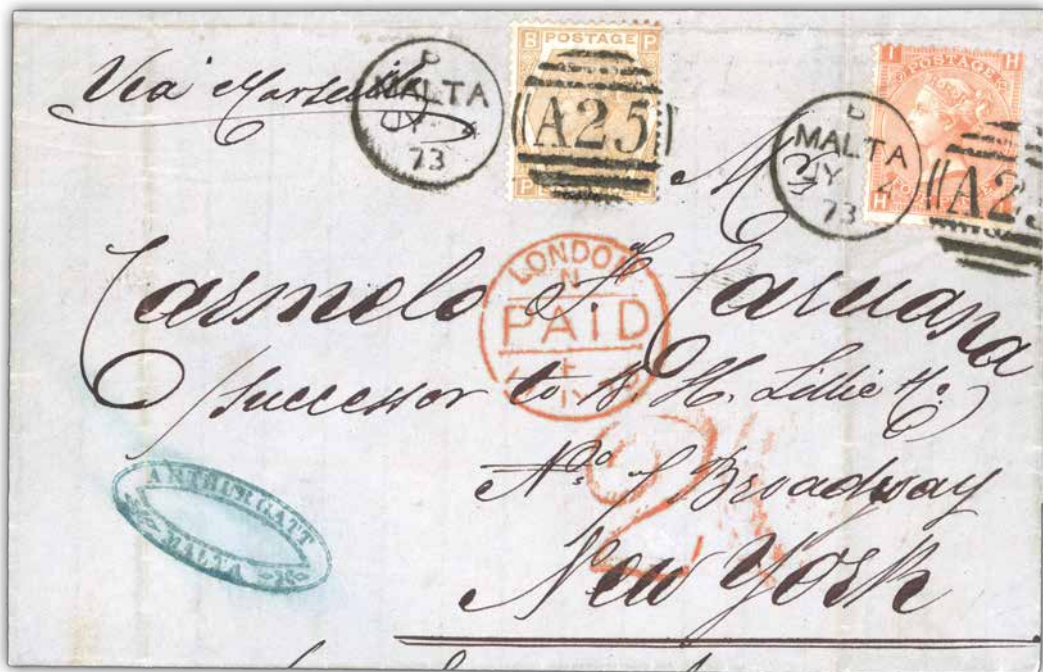 Via Marseille
B
MALTA
JY
73
B POSTAGE P
A25
P
B
MALTA
JY 2
73
I POSTAGE H
H
A25
M
Carmelo F. Caruana
LONDON
N
PAID
JY
Successor to
H. Lillie
2
No 7 Broadway
New York
ARTHUR GATT
MALTA